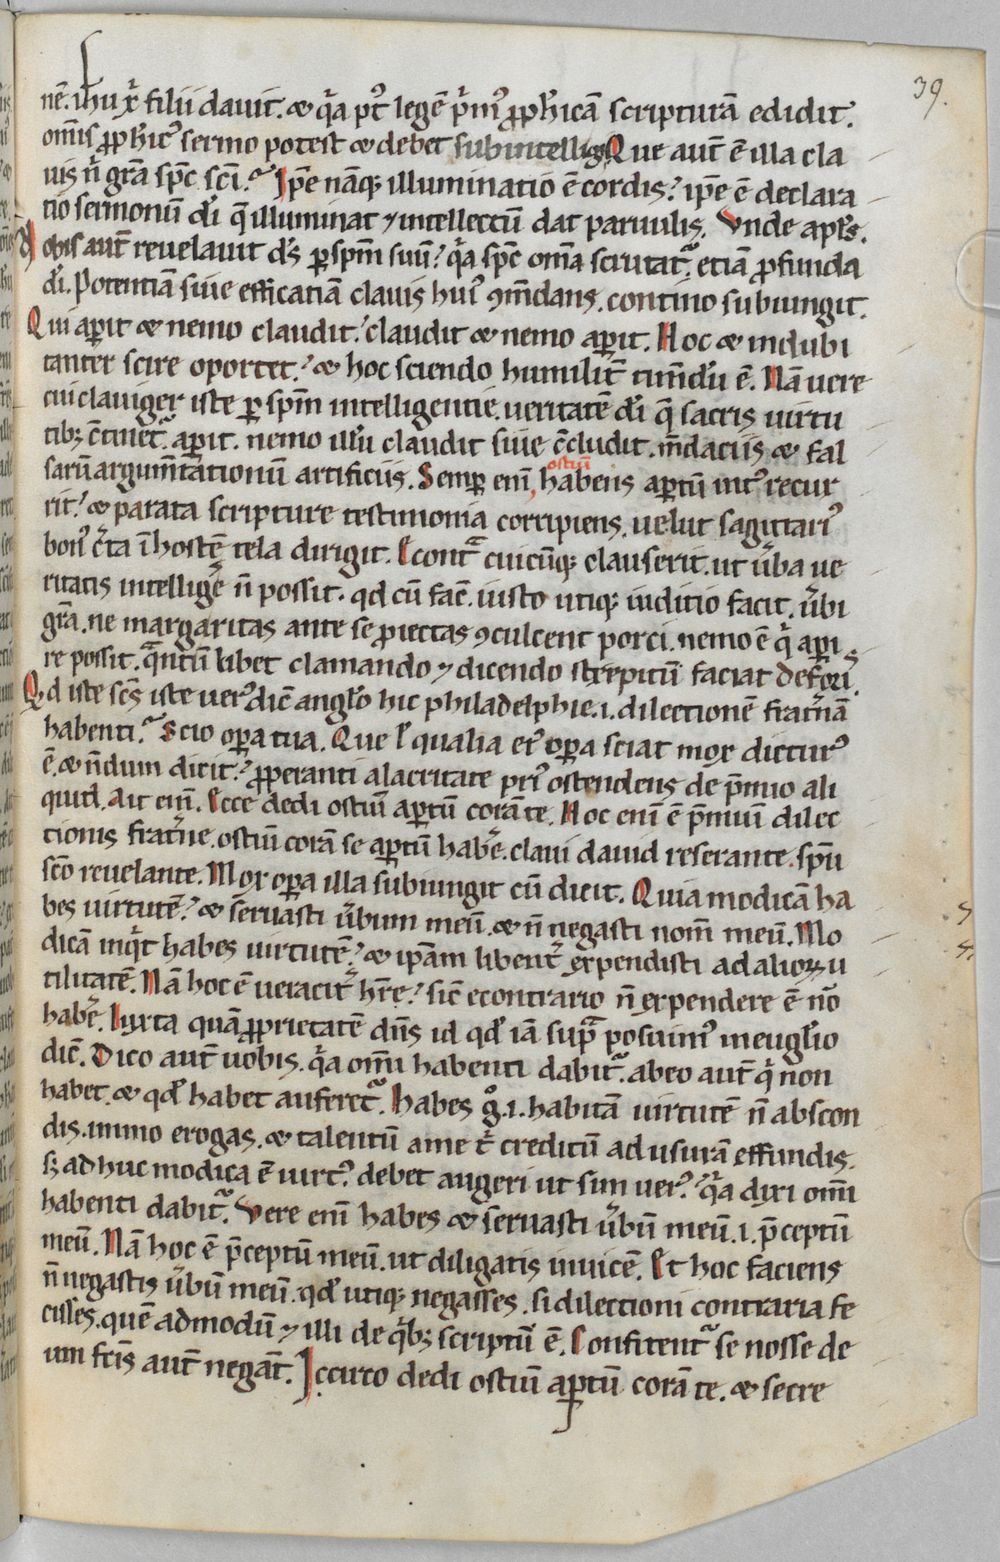 39.
nē. ihu xp̄ filii dauit. & q̇a pt̉ legē ṗmꝰ ꝓph̓icā scripturā edidit.
om̄is ꝓph̓icꝰ sermo potest & debet subintelligi. Que aut̄ ē illa cla
uis n̓ gr̄a sp̄c sc̄i.ˀ Ip̄e nāq; illuminatio ē cordis.ˀ ip̄e ē declara
tio sermonū dī q̄ illuminat ⁊ intellectū dat paruulis. Vnde apl̓s.
Nobis aut̄ reuelauit ds̄ ꝑ sp̄m suū.ˀ q̇a sp̄c om̄a scrutat᷑. etiā ꝓfunda
dī. Potentiā siue efficatiā clauis huiꝰ ꝯm̄dans. contino subiungit.
Qui aꝑit & nemo claudit.ˀ claudit & nemo aꝑit. Hoc & indubi
tanter scire oportet.ˀ & hoc sciendo humilit̓ timēdū ē. Nā uere
cui clauiger iste ꝑ sp̄m intelligentie. ueritatē dī q̄ sacris uirtu
tib; c̄tinet᷑. aꝑit. nemo illū claudit siue c̄cludit. m̄daciis & fal
sarū argum̄tationū artificiis. Semꝑ enī, habens aꝑtū int̓ recur
ostiū
rit.ˀ & parata scripture testimonia corripiens. uelut sagittariꝰ
bonꝰ c̓ta ī hostē tela dirigit. Econtᷓ cuicūq; clauserit. ut u̓ba ue
ritatis intellige̓ n̄ possit. qd cū fac̄. iusto utiq; iuditio facit. u̓bi
gr̄a. ne margaritas ante se proiectas ꝯculcent porci. nemo ē q̇ aꝑi
re possit. q̄ntū libet clamando ⁊ dicendo strepitū faciat deforis.
Qd iste sc̄s iste uerꝰ dic̄ anglo̓ hic philadelphie .i. dilectionē frat̓nā
habenti.ˀ Scio oꝑa tua. Que l̓ qualia eiꝰ oꝑa sciat mox dicturꝰ
ē. & n̄dum dicit.ˀ ꝓperanti alacritate priꝰ ostendens de p̄mio ali
quid. Ait enī. Ecce dedi ostiū aꝑtū corā te. Hoc enī ē p̄miuū dilec
tionis frat̓ne. ostiū corā se aꝑtū habe̓. claui dauid reserante. sp̄u
sc̄o reuelante. Mox oꝑa illa subiungit cū dicit. Quia modicā ha
bes uirtutē.ˀ & seruasti u̓bum meū. & n̄ negasti nom̄ meū. Mo
dicā inq̇t habes uirtutē.ˀ & ip̄am libent̓ expendisti ad alioꝝ u
tilitatē. Nā hoc ē ueracit̓ hr̄e.ˀ sic̄ econtrario n̄ expendere ē no̓
habe̓. Iuxta quā ꝓprietatē dn̄s id qd̓ iā supᷓ posuimꝰ in euglo̓
dic̄. Dico aut̄ uobis. q̇a om̄i habenti dabit᷑. ab eo aut̄ q̇ non
habet. & qd̓ habet auferet᷑. Habes g̊ .i. habitā uirtutē n̄ abscon
dis. immo erogas. & talentū a me t̓ creditū ad usurā effundis.
s; ad huc modica ē uirtꝰ. debet augeri ut sim uerꝰ.ˀ q̇a dixi om̄i
habenti dabit᷑. Vere enī habes & seruasti u̓bū meū .i. p̄ceptū
meū. Nā hoc ē p̄ceptū meū. ut diligatis inuicē. Et hoc faciens
n̄ negastis u̓bū meū. qd̓ utiq; negasses. si dilectioni contraria fe
cisses. quē admodū ⁊ illi de q̇b; scriptū ē. Confitent᷑ se nosse de
um fc̄is aut̄ negāt. Iccirco dedi ostiū aꝑtū corā te. & secre